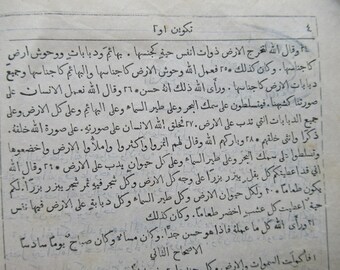 ٤ تكوين ١ و ٢
٢٤ وقال الله لتخرج الارض ذوات انفس حية كجنسها. بهائم ودبابات ووحوش ارض
كاجناسها. وكان كذلك. ٢٥ فعمل الله وحوش الارض كاجناسها والبهائم كاجناسها وجميع
دبابات الارض كاجناسها. ورأى الله ذلك انه حسن. ٢٦ وقال الله نعمل الانسان على
صورتنا كشبهنا. فيتسلطون على سمك البحر وعلى طير السماء وعلى البهائم وعلى كل الارض وعلى
جميع الدبابات التي تدب على الارض. ٢٧ فخلق الله الانسان على صورته. على صورة الله خلقه.
ذكرا وانثى خلقهم. ٢٨ وباركهم الله وقال لهم اثمروا واكثروا واملأوا الارض واخضعوها
وتسلطوا على سمك البحر وعلى طير السماء وعلى كل حيوان يدب على الارض. ٢٩ وقال الله
اني قد اعطيتكم كل بقل يبزر بزرا على وجه كل الارض وكل شجر فيه ثمر شجر يبزر بزرا. لكم
يكون طعاما. ٣٠ ولكل حيوان الارض وكل طير السماء وكل دبابة على الارض فيها نفس
حية اعطيت كل عشب اخضر طعاما. وكان كذلك
٣١ ورأى الله كل ما عمله فاذا هو حسن جدا. وكان مساء وكان صباح يوما سادسا
الاصحاح الثاني
١ فاكملت السموات والارض وكل جندها.